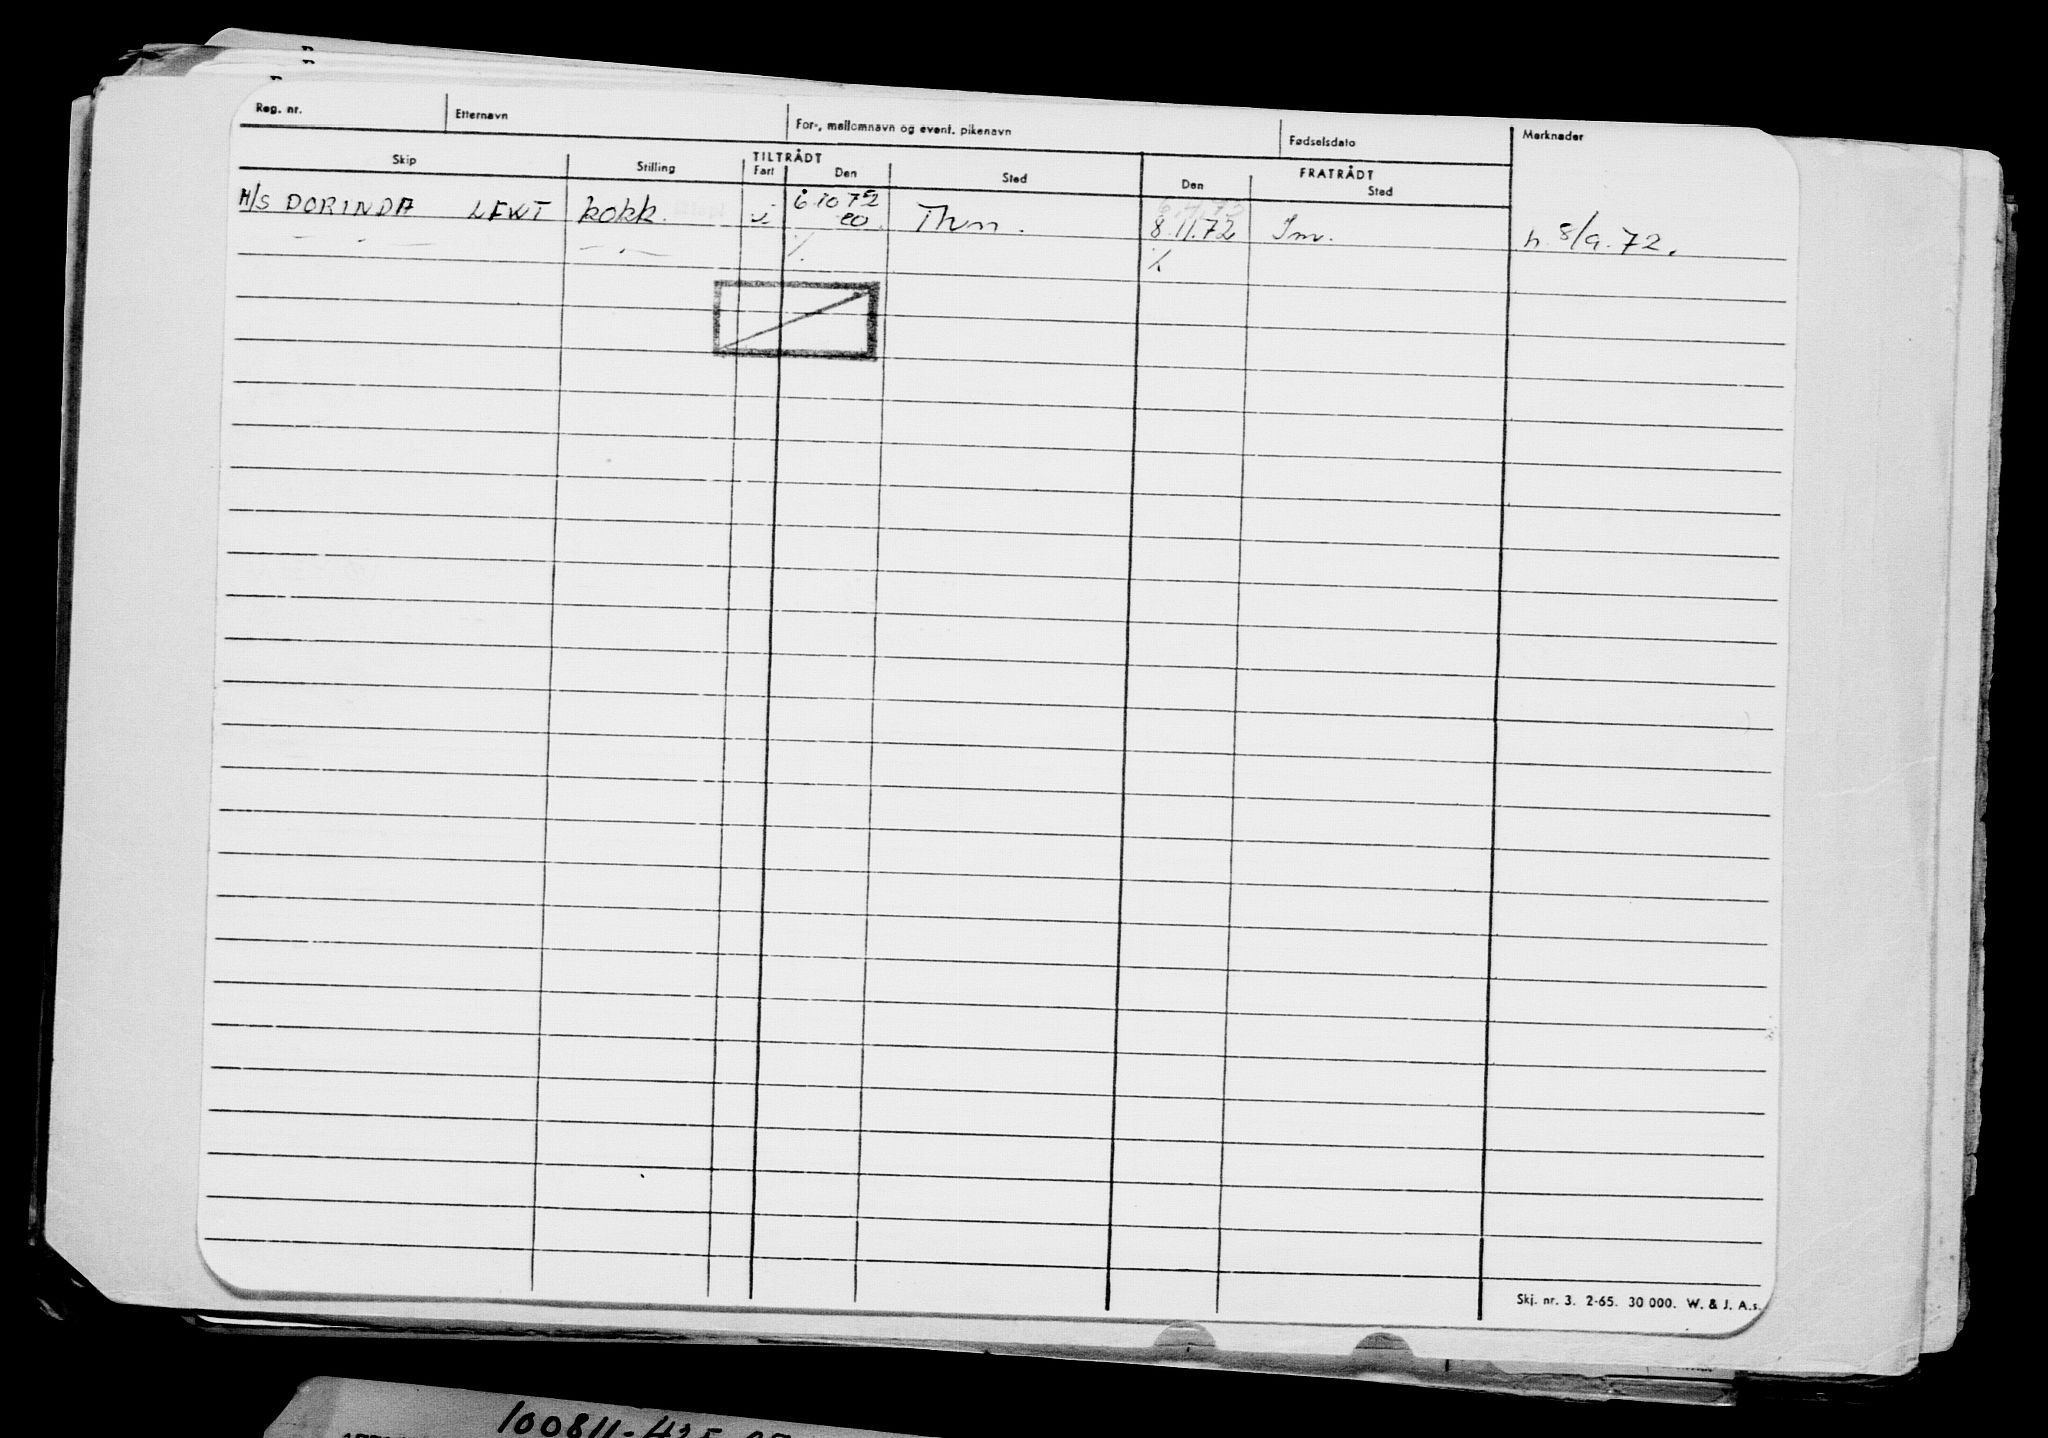 Reg. nr. Etternavn For-, mellomnavn og event. pikenavn Fødselsdato Merknader
TILTRÅDT FRATRÅDT
Skip Stilling Fart Den Sted Den Sted
6.10.72
M/S DORINDA LEWT kokk. u 80. Thm. 8.11.72 Im. h. 8/9.72.
— . — — . — ٪ ٪
Skj. nr. 3. 2-65. 30 000. W. & J. A.s.
100811-425